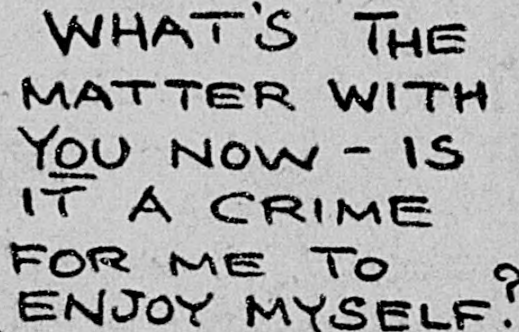 WHAT'S THE
MATTER WITH
YOU NOW - IS
IT A CRIME
FOR ME TO
ENJOY MYSELF?